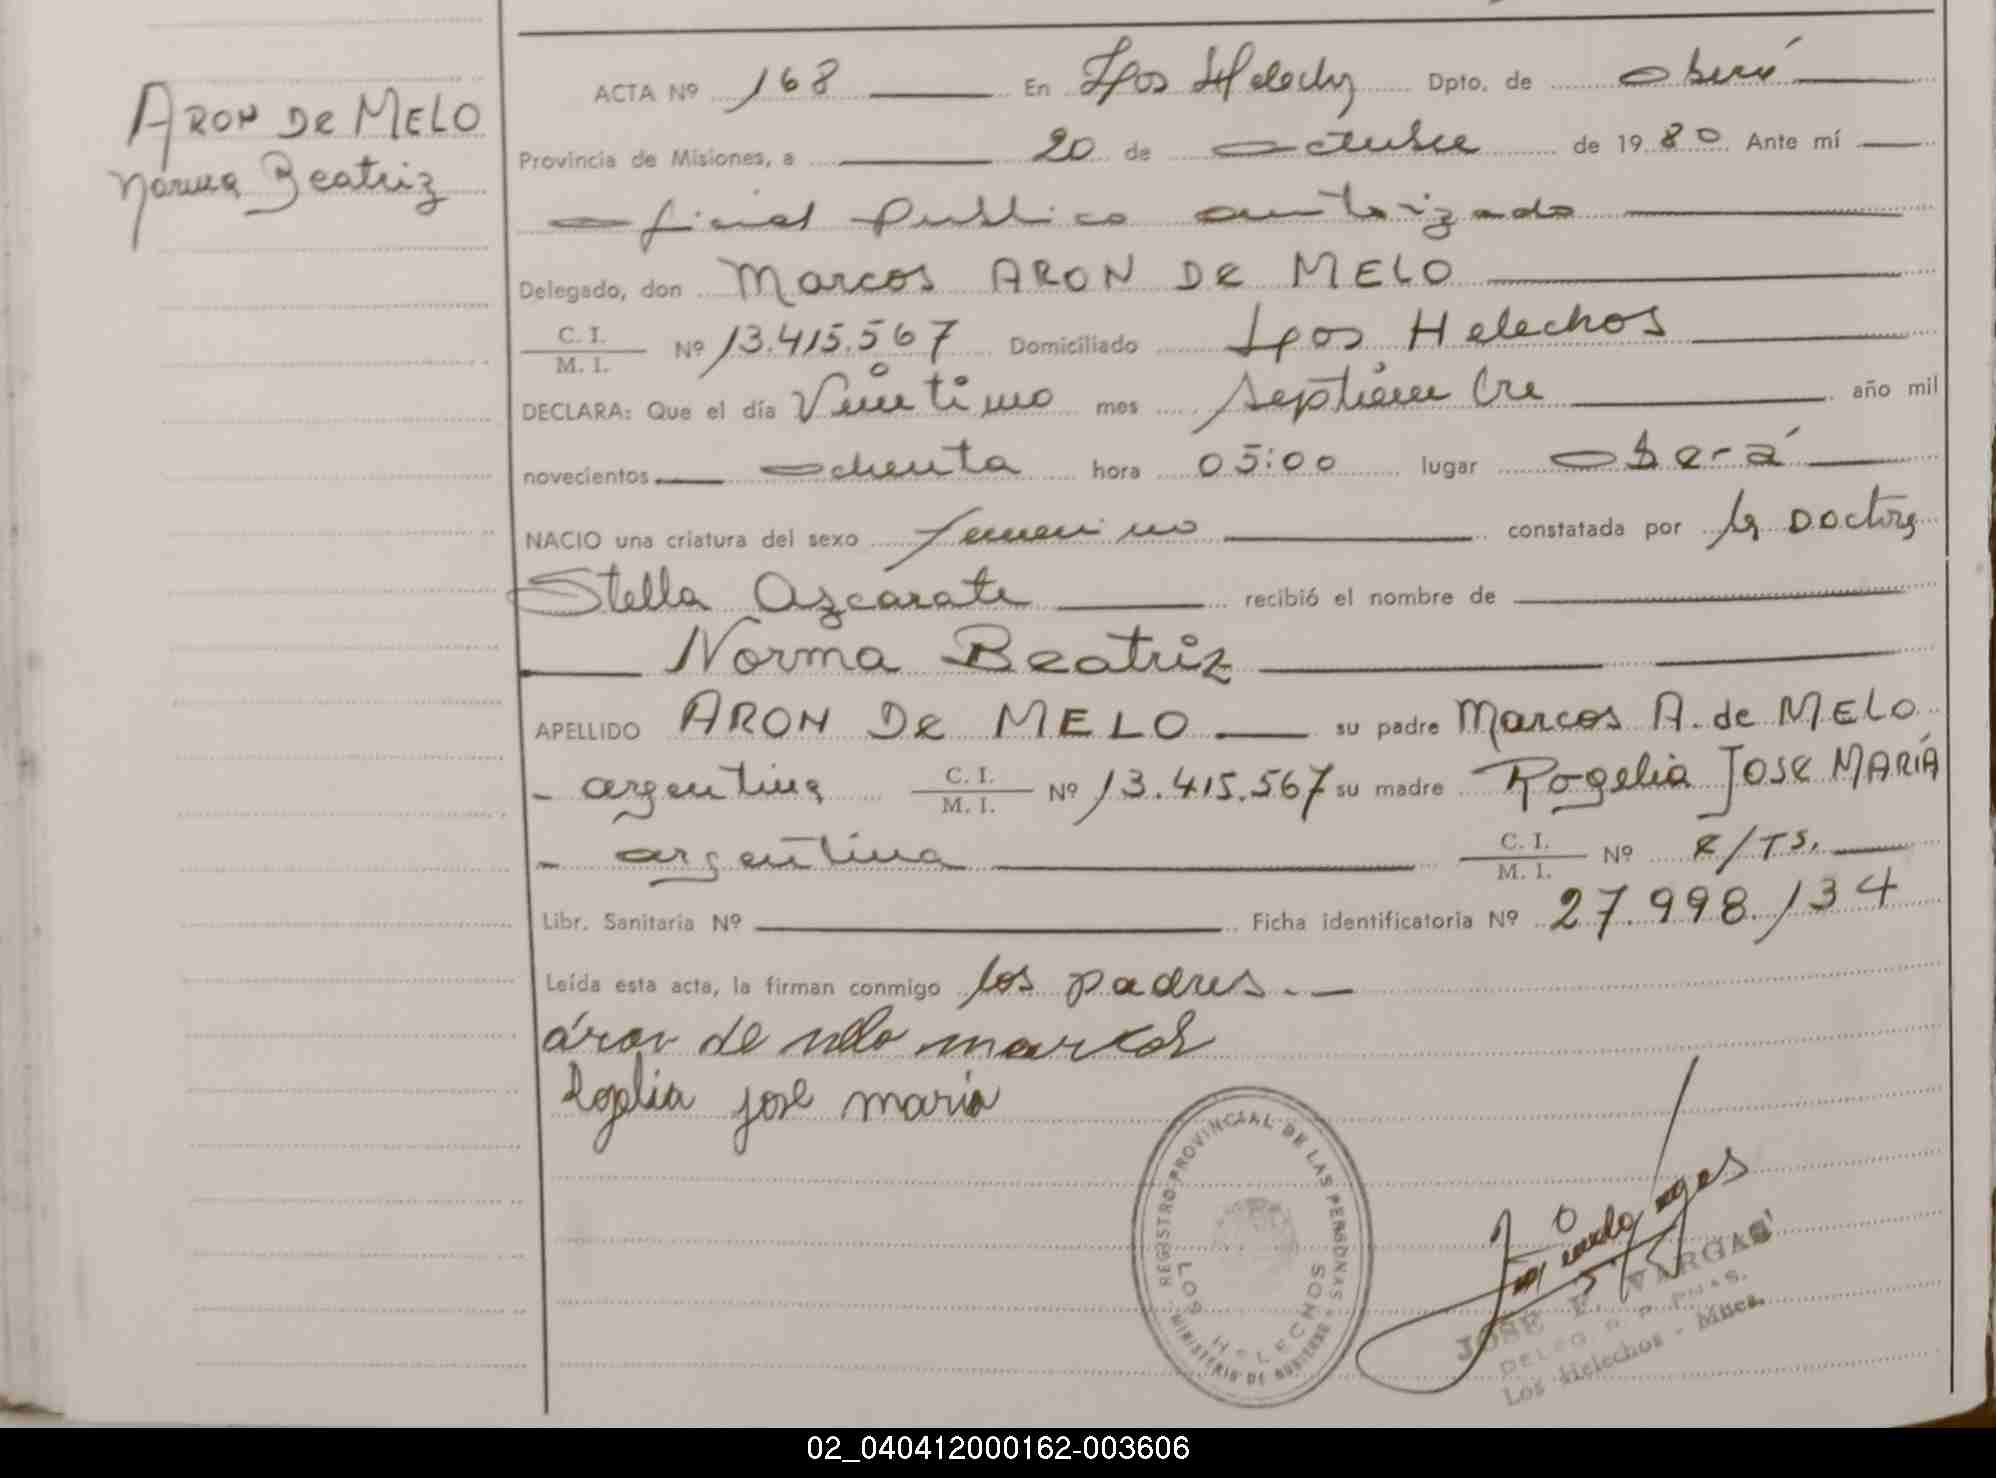 ARON De MELO
Norma Beatriz
ACTA Nº 168 En Los Helechos Dpto. de Oberá
Provincia de Misiones, a 20 de octubre de 1980 Ante mí
oficial publico autorizado
Delegado, don Marcos ARON De MELO
C. I.
M. I. Nº 13.415.567 Domiciliado Los Helechos
DECLARA: Que el día mes septiembre año mil
novecientos ochenta hora 05:00 lugar Oberá
NACIO una criatura del sexo femenino constatada por la Doctora
Stella Azcarate recibió el nombre de
Norma Beatriz
APELLIDO ARON De MELO su padre Marcos A. de MELO
- argentina C. I.
M. I. Nº 13.415.567 su madre Rogelia JOSE MARIA
- argentina C. I.
M. I. Nº E/TS.
Libr. Sanitaria Nº Ficha identificatoria Nº 27.998.134
Leída esta acta, la firman conmigo los padres.-
áron de melo marcos
Rogelia jose maría
REGISTRO PROVINCIAL DE LAS PERSONAS
MINISTERIO DE GOBIERNO
LOS HELECHOS
JOSE F. VARGAS
Los Helechos - Mnes.
02_040412000162-003606